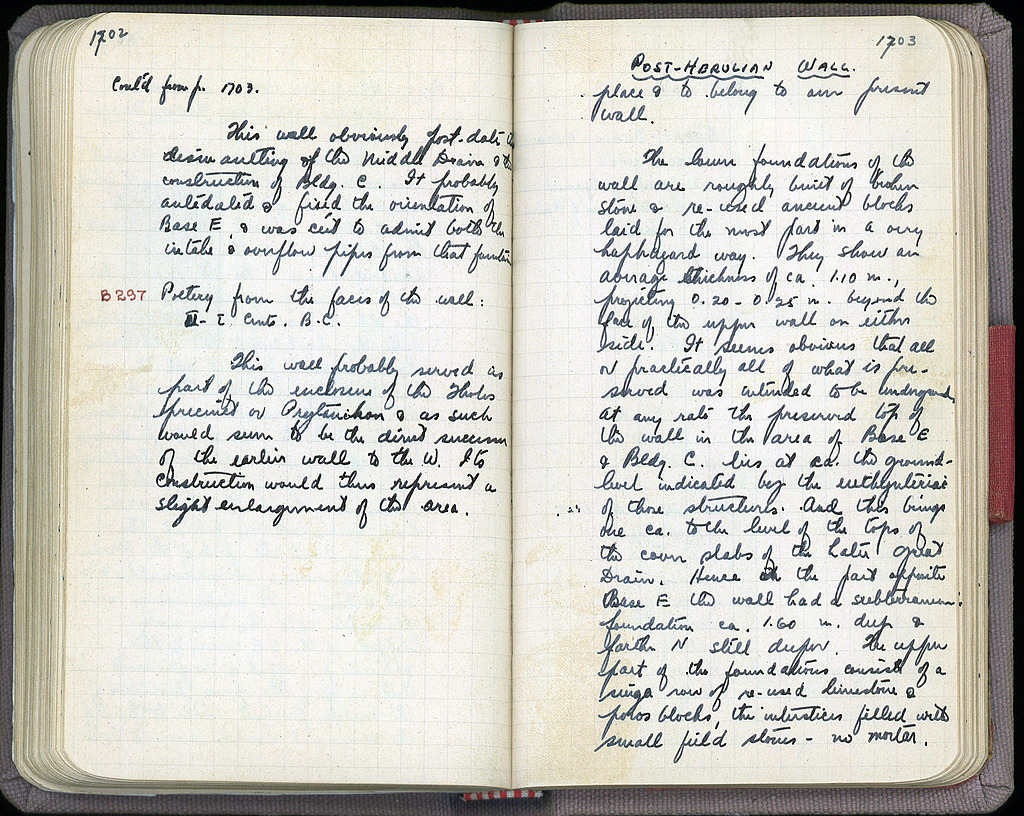 1702
Cont'd from p. 1703.
This wall obviously post-dates the
dismantling of the Middle Drain & the
construction of Bldg. C. It probably
antedated & fixed the orientation of
Base E, & was cut to admit both the
intake & overflow pipes from that fountain
B 297 Pottery from the faces of the wall:
II-I Cents. B.C.
This wall probably served as
part of the enclosure of the Tholos
precinct or Prytanikon & as such
would seem to be the direct successor
of the earlier wall to the W. Its
construction would thus represent a
slight enlargement of the area.
1703
POST-HERULIAN WALL.
place & to belong to our present
wall.
The lower foundations of the
wall are roughly built of broken
stone & re-used ancient blocks
laid for the most part in a very
haphazard way. They show an
average thickness of ca. 1.10 m.,
projecting 0.20-0.25 m. beyond the
face of the upper wall on either
side. It seems obvious that all
or practically all of what is pre-
served was intended to be underground.
At any rate the preserved top of
the wall in the area of Base E
& Bldg. C. lies at ca. the ground-
level indicated by the euthynteriai
of those structures. And this brings
one ca. to the level of the tops of
the cover slabs of the Later Great
Drain. Hence in the part opposite
Base E the wall had a subterranean
foundation ca. 1.60 m. deep &
farther N still deeper. The upper
part of the foundations consists of a
single row of re-used limestone &
poros blocks, the interstices filled with
small field stones - no mortar.